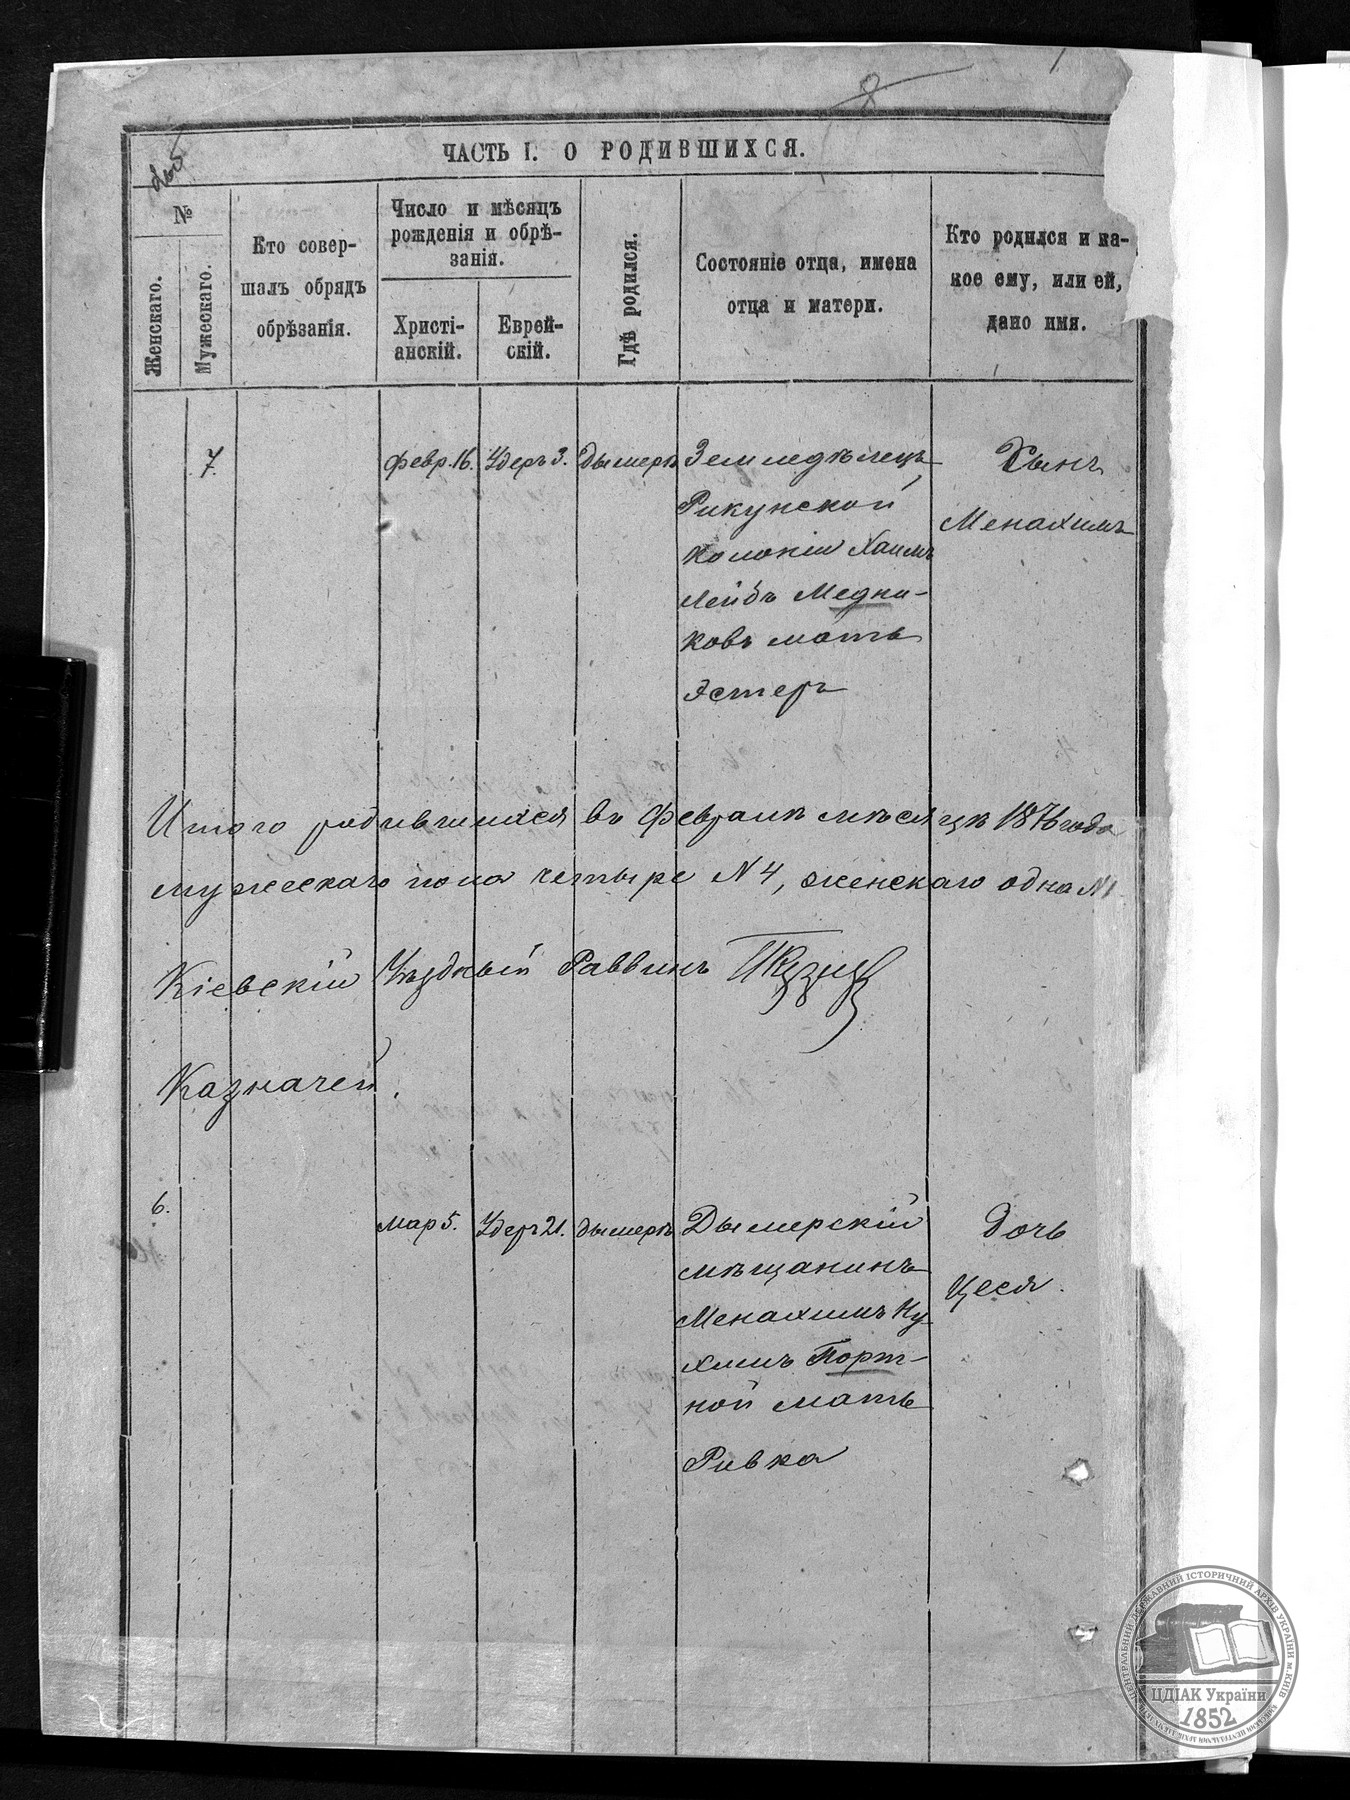 8
ЧАСТЬ I. О РОДИВШИХСЯ.
№
Женскаго.
Мужескаго.
Кто совер-
шалъ обрядъ
обрѣзанія.
Число и мѣсяцъ
рожденія и обрѣ-
занія.
Христі-
анскій.
Еврей-
скій.
Гдѣ родился.
Состояніе отца, имена
отца и матери.
Кто родился и ка-
кое ему, или ей,
дано имя.
7.
Февр. 16.
Удеръ 3.
Дымеръ
Земледѣлецъ
Рикунской
колоніи Хаимъ
Лейбъ Медни-
ковъ мать
Эстеръ
Сынъ
Менахимъ
Итого родившихся въ Февралѣ мѣсяцѣ 1876 года
мужескаго пола четыре N 4, женскаго одна N 1
Кіевскій Уѣздный Раввинъ
Казначей.
6.
Мар 5.
Удеръ 21.
Дымеръ
Дымерскій
мѣщанинъ
Менахимъ Ну
химъ Порт-
ной мать
Ривка
Дочь
Цеся.
ЦЕНТРАЛЬНИЙ ДЕРЖАВНИЙ ІСТОРИЧНИЙ АРХІВ УКРАЇНИ М. КИЇВ
ЦДІАК України
1852